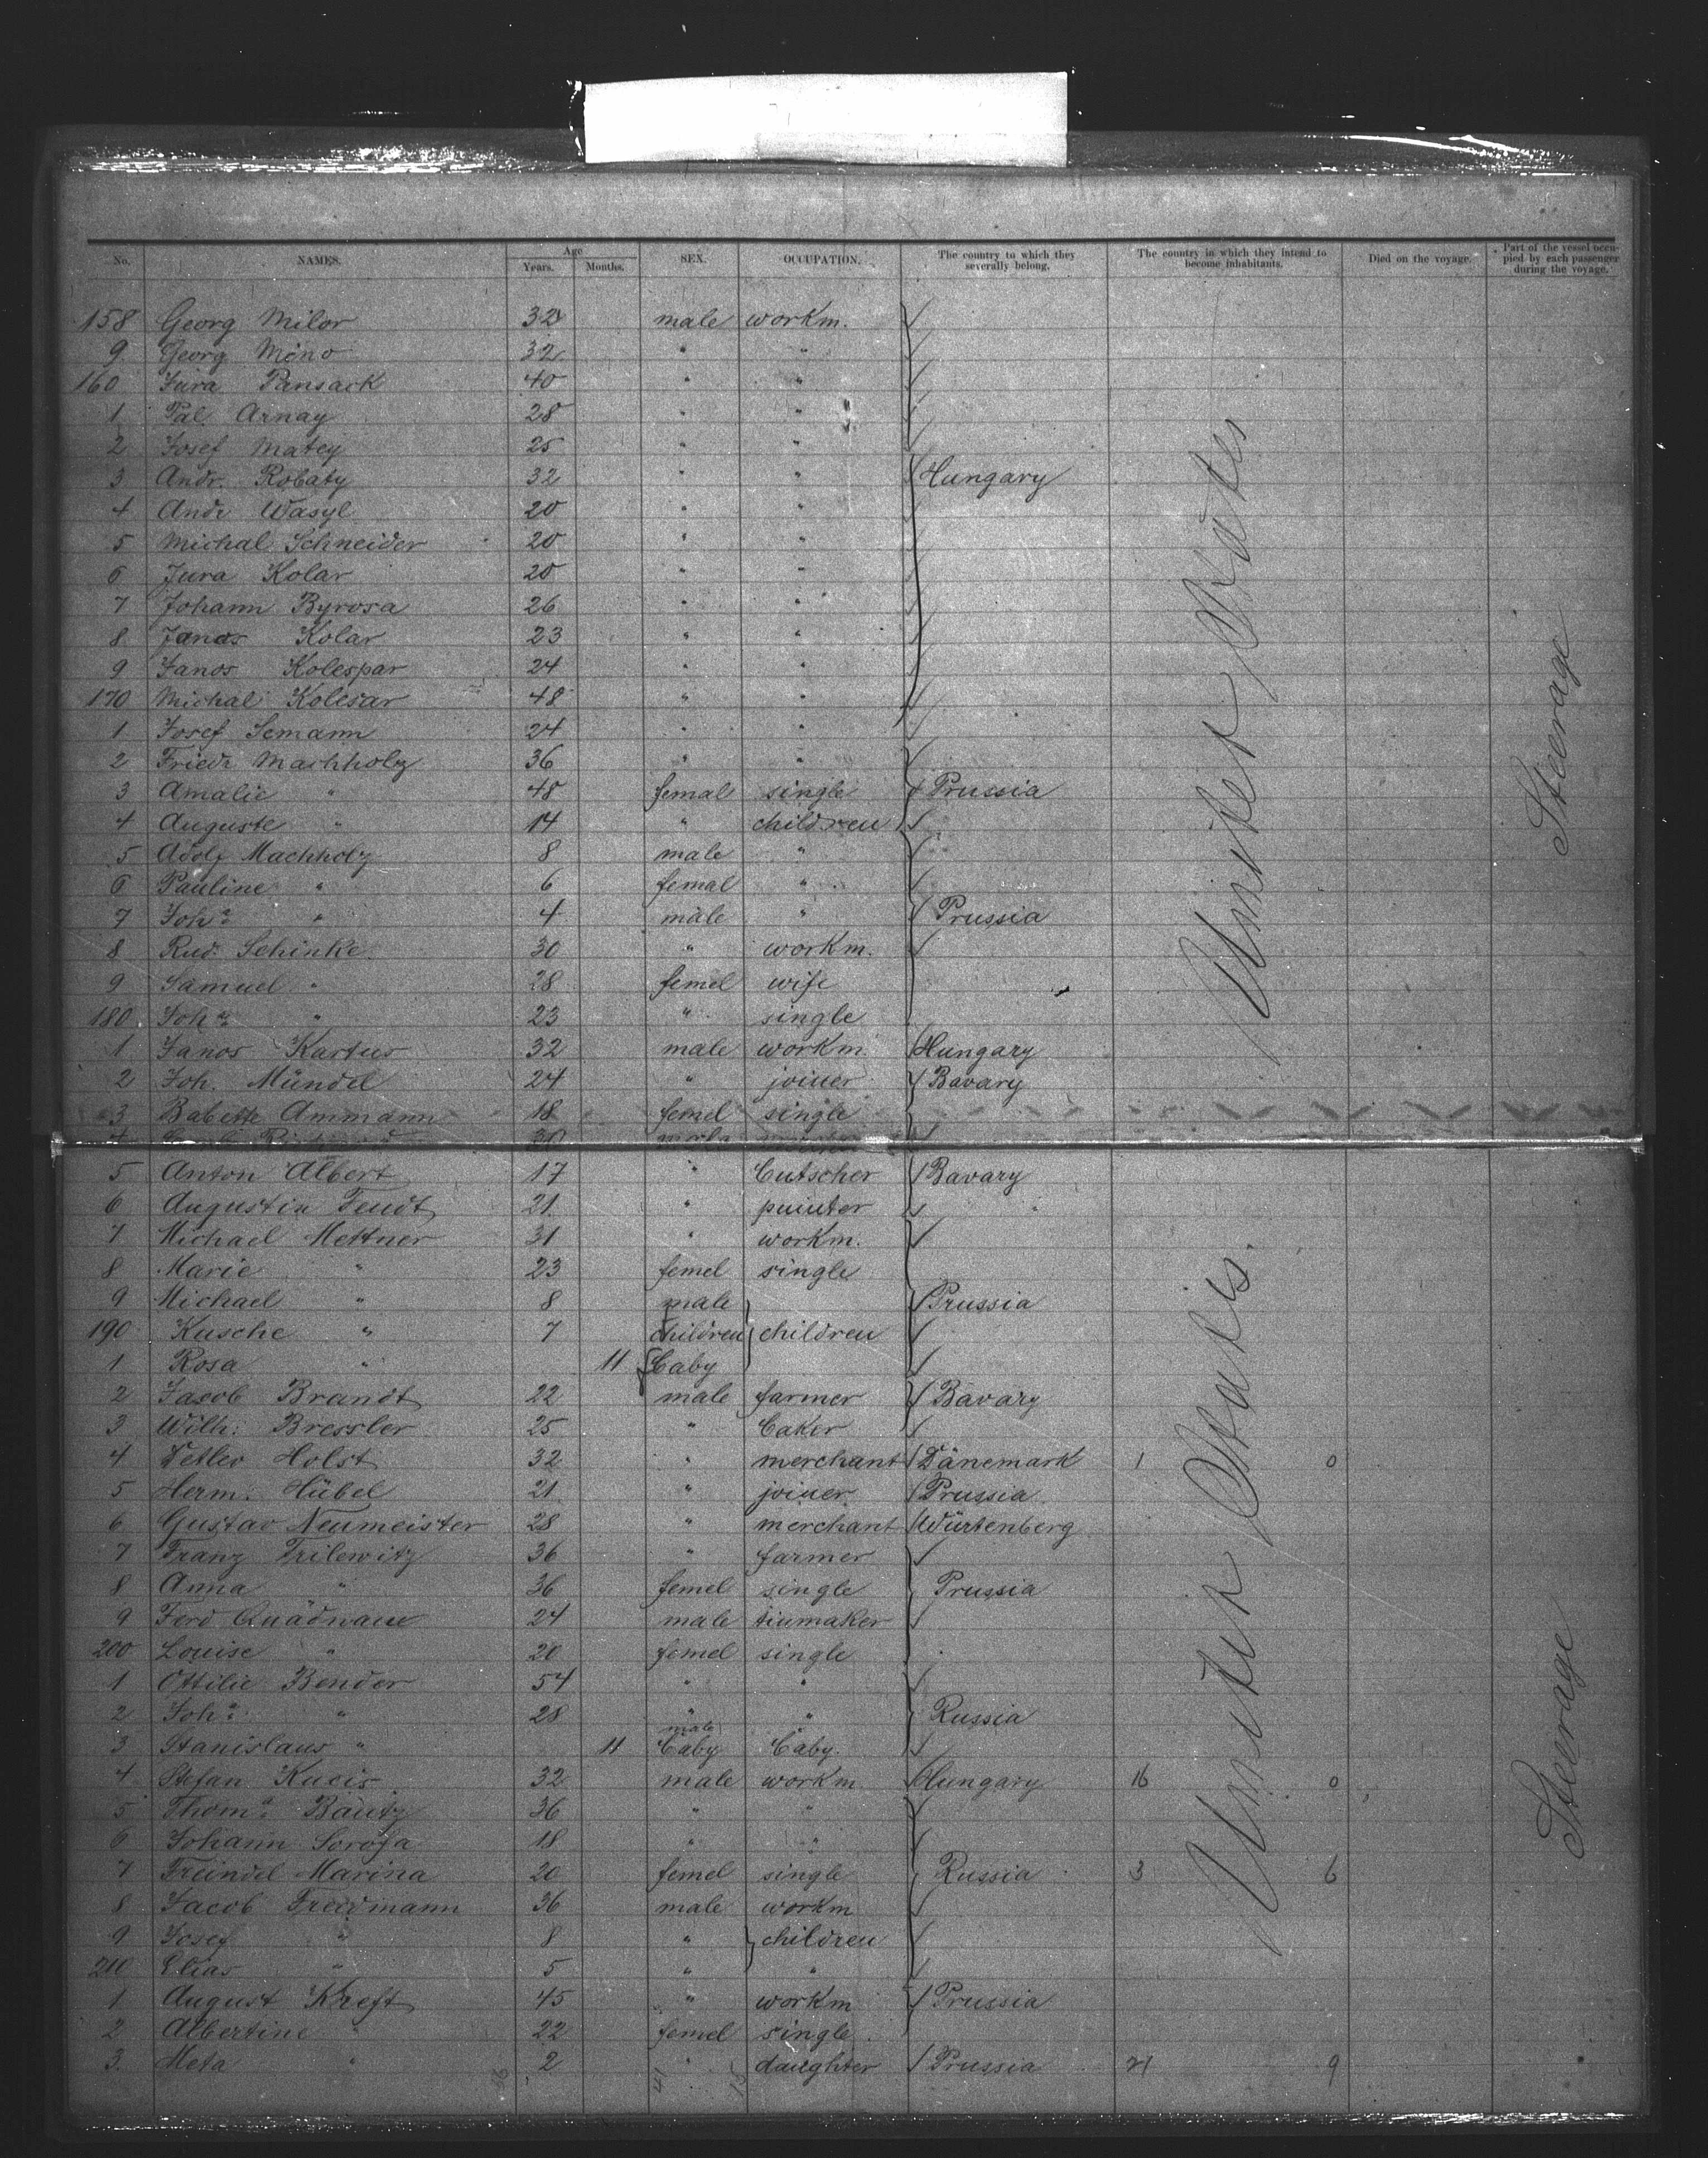 No. NAMES. Age Years. Months. SEX. OCCUPATION. The country to which they severally belong. The country in which they intend to become inhabitants. Died on the voyage. Part of the vessel occupied by each passenger during the voyage.
158 Georg Milor 32 male workm.
9 Georg Mino 32 " "
160 Jura Pansack 40 " "
1 Pal. Arnay 28 " "
2 Josef Matey 25 " "
3 Andr. Robaty 32 " " Hungary
4 Andr Wasyl 20 " "
5 Michal Schneider 20 " "
6 Jura Kolar 20 " "
7 Johann Byrosa 26 " "
8 Janos Kolar 23 " "
9 Janos Kolespar 24 " "
170 Michal Kolesar 48 " "
1 Josef Semann 24 " "
2 Friedr. Machholz 36 " "
3 Amalie " 48 femal single Prussia
4 Auguste " 14 " children
5 Adolf Machholz 8 male "
6 Pauline " 6 femal "
7 Joh. " 4 male " Prussia
8 Rud. Schinke 30 " workm.
9 Samuel " 28 femel wife
180 Joh. " 23 " single
1 Janos Kartus 32 male workm. Hungary
2 Joh. Mündel 24 " joiner Bavary
3 Babette Ammann 18 femel single
5 Anton Albert 17 " butscher Bavary
6 Augustin Fendt 21 " puinter
7 Michael Mettner 31 " workm.
8 Marie " 23 femel single
9 Michael " 8 male Prussia
190 Kusche " 7 children children
1 Rosa " 11 baby
2 Jacob Brandt 22 male farmer Bavary
3 Wilh. Bressler 25 " baker
4 Detlev Holst 32 " merchant Dänemark 1 0
5 Herm. Hübel 21 " joiner Prussia
6 Gustav Neumeister 28 " merchant Würtenberg
7 Franz Trilewitz 36 " farmer
8 Anna " 36 femel single Prussia
9 Ferd. 24 male tinmaker
200 Louise " 20 femel single
1 Ottilie Bender 54 " "
2 Joh. " 28 " " Russia
3 Stanislaus " 11 male baby baby.
4 Stefan Kucis 32 male workm Hungary 16 0
5 Thom. Bautz 36 " "
6 Johann Soroja 18 " "
7 Freindel Marina 20 femel single Russia 3 6
8 Jacob Freidmann 36 male workm
9 Josef " 8 " children
210 Elias " 5 " "
1 August Kreft 45 " workm Prussia
2 Albertine " 22 femel single
3. Meta " 2 " daughter Prussia 21 9
United States
Steerage
United Staats.
Steerage